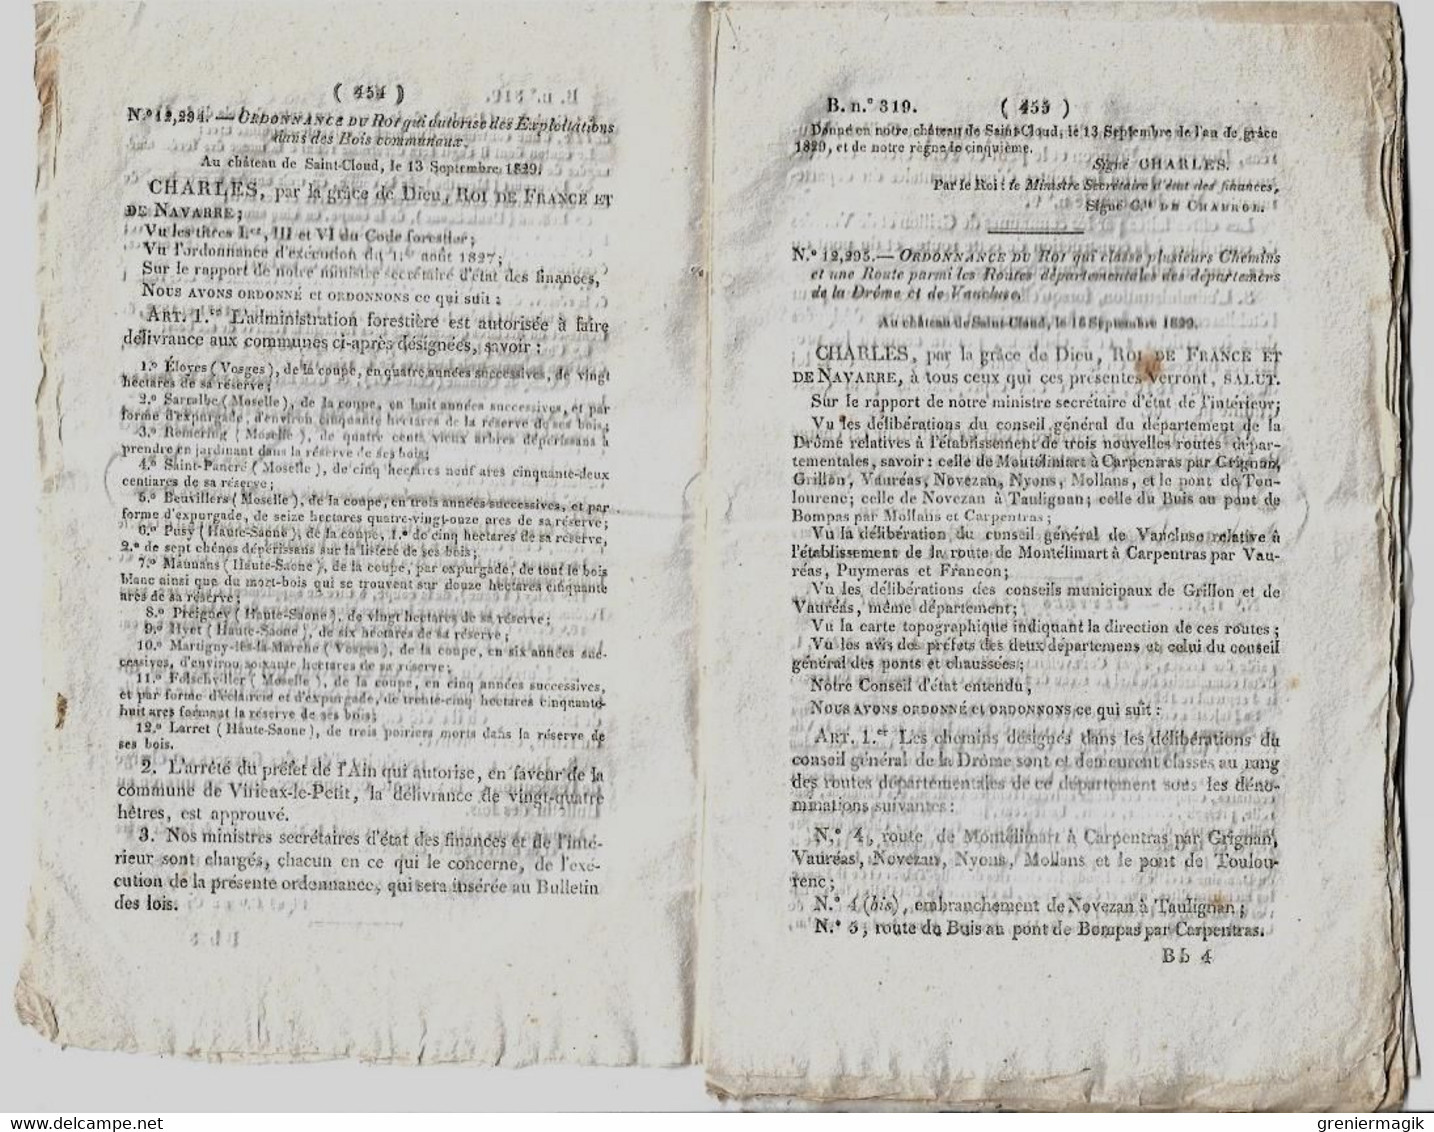 ( 454 )
N.º 12,294. — ORDONNANCE DU ROI qui autorise des Exploitations
dans des Bois communaux.
Au château de Saint-Cloud, le 13 Septembre 1829.
CHARLES, par la grâce de Dieu, ROI DE FRANCE ET
DE NAVARRE;
Vu les titres I.er, III et VI du Code forestier;
Vu l'ordonnance d'exécution du 1.er août 1827;
Sur le rapport de notre ministre secrétaire d'état des finances,
NOUS AVONS ORDONNÉ et ORDONNONS ce qui suit :
ART. 1.er L'administration forestière est autorisée à faire
délivrance aux communes ci-après désignées, savoir :
1.º Éloyes (Vosges), de la coupe, en quatre années successives, de vingt
hectares de sa réserve;
2.º Sarralbe (Moselle), de la coupe, en huit années successives, et par
forme d'expurgade, d'environ cinquante hectares de la réserve de ses bois;
3.º Remering (Moselle), de quatre cents vieux arbres dépérissans à
prendre en jardinant dans la réserve de ses bois;
4.º Saint-Pancré (Moselle), de cinq hectares neuf ares cinquante-deux
centiares de sa réserve;
5.º Beuvillers (Moselle), de la coupe, en trois années successives, et par
forme d'expurgade, de seize hectares quatre-vingt-onze ares de sa réserve;
6.º Pusy (Haute-Saone), de la coupe, 1.º de cinq hectares de sa réserve,
2.º de sept chênes dépérissans sur la lisière de ses bois;
7.º Maunans (Haute-Saone), de la coupe, par expurgade, de tout le bois
blanc ainsi que du mort-bois qui se trouvent sur douze hectares cinquante
ares de sa réserve;
8.º Preigney (Haute-Saone), de vingt hectares de sa réserve;
9.º Hyet (Haute-Saone), de six hectares de sa réserve;
10.º Martigny-lès-la-Marche (Vosges), de la coupe, en six années suc-
cessives, d'environ soixante hectares de sa réserve;
11.º Folschviller (Moselle), de la coupe, en cinq années successives,
et par forme d'éclaircie et d'expurgade, de trente-cinq hectares cinquante-
huit ares formant la réserve de ses bois;
12.º Larret (Haute-Saone), de trois poiriers morts dans la réserve de
ses bois.
2. L'arrêté du préfet de l'Ain qui autorise, en faveur de la
commune de Virieux-le-Petit, la délivrance de vingt-quatre
hêtres, est approuvé.
3. Nos ministres secrétaires d'état des finances et de l'inté-
rieur sont chargés, chacun en ce qui le concerne, de l'exé-
cution de la présente ordonnance, qui sera insérée au Bulletin
des lois.
B. n.º 319. ( 455 )
Donné en notre château de Saint-Cloud, le 13 Septembre de l'an de grâce
1829, et de notre règne le cinquième.
Signé CHARLES.
Par le Roi : le Ministre Secrétaire d'état des finances,
Signé C.te DE CHABROL.
N.º 12,295. — ORDONNANCE DU ROI qui classe plusieurs Chemins
et une Route parmi les Routes départementales des départemens
de la Drôme et de Vaucluse.
Au château de Saint-Cloud, le 16 Septembre 1829.
CHARLES, par la grâce de Dieu, ROI DE FRANCE ET
DE NAVARRE, à tous ceux qui ces présentes verront, SALUT.
Sur le rapport de notre ministre secrétaire d'état de l'intérieur;
Vu les délibérations du conseil général du département de la
Drôme relatives à l'établissement de trois nouvelles routes dépar-
tementales, savoir : celle de Montélimart à Carpentras par Grignan,
Grillon, Vauréas, Novezan, Nyons, Mollans, et le pont de Tou-
lourenc; celle de Novezan à Taulignan; celle du Buis au pont de
Bompas par Mollans et Carpentras;
Vu la délibération du conseil général de Vaucluse relative à
l'établissement de la route de Montélimart à Carpentras par Vau-
réas, Puymeras et Francon;
Vu les délibérations des conseils municipaux de Grillon et de
Vauréas, même département;
Vu la carte topographique indiquant la direction de ces routes;
Vu les avis des préfets des deux départemens et celui du conseil
général des ponts et chaussées;
Notre Conseil d'état entendu,
NOUS AVONS ORDONNÉ et ORDONNONS ce qui suit :
ART. 1.er Les chemins désignés dans les délibérations du
conseil général de la Drôme sont et demeurent classés au rang
des routes départementales de ce département sous les déno-
minations suivantes :
N.º 4, route de Montélimart à Carpentras par Grignan,
Vauréas, Novezan, Nyons, Mollans et le pont de Toulou-
renc;
N.º 4 (bis), embranchement de Novezan à Taulignan;
N.º 5, route du Buis au pont de Bompas par Carpentras.
B b 4
www.delcampe.net
greniermagik